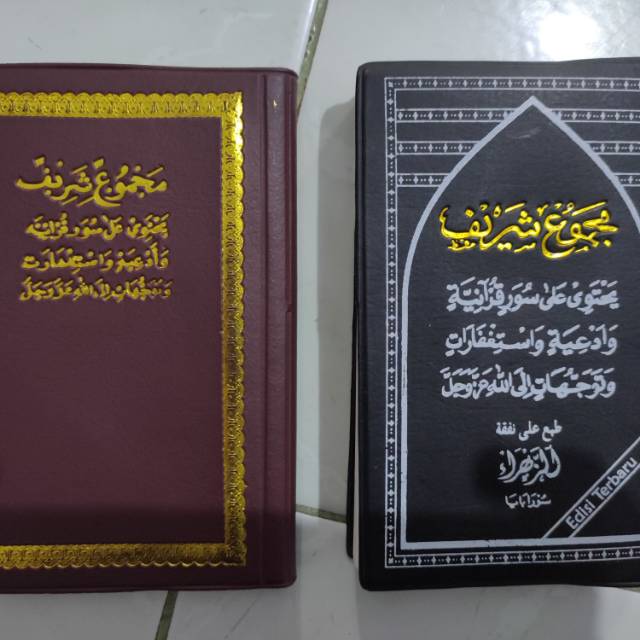 مَجْمُوعٌ شَرِيْفٌ
يَحْتَوِى عَلَى سُوَرٍ قُرْآنِيَّةٍ
وَأَدْعِيَةٍ وَاسْتِغْفَارَاتٍ
وَتَوَجُّهَاتٍ إِلَى اللهِ عَزَّ وَجَلَّ
مَجْمُوْعٌ شَرِيْفٌ
يَحْتَوِى عَلَى سُوَرٍ قُرْآنِيَّةٍ
وَأَدْعِيَةٍ وَاسْتِغْفَارَاتٍ
وَتَوَجُّهَاتٍ إِلَى اللهِ عَزَّ وَجَلَّ
طبع على نفقة
الزهراء
سورابايا
Edisi Terbaru